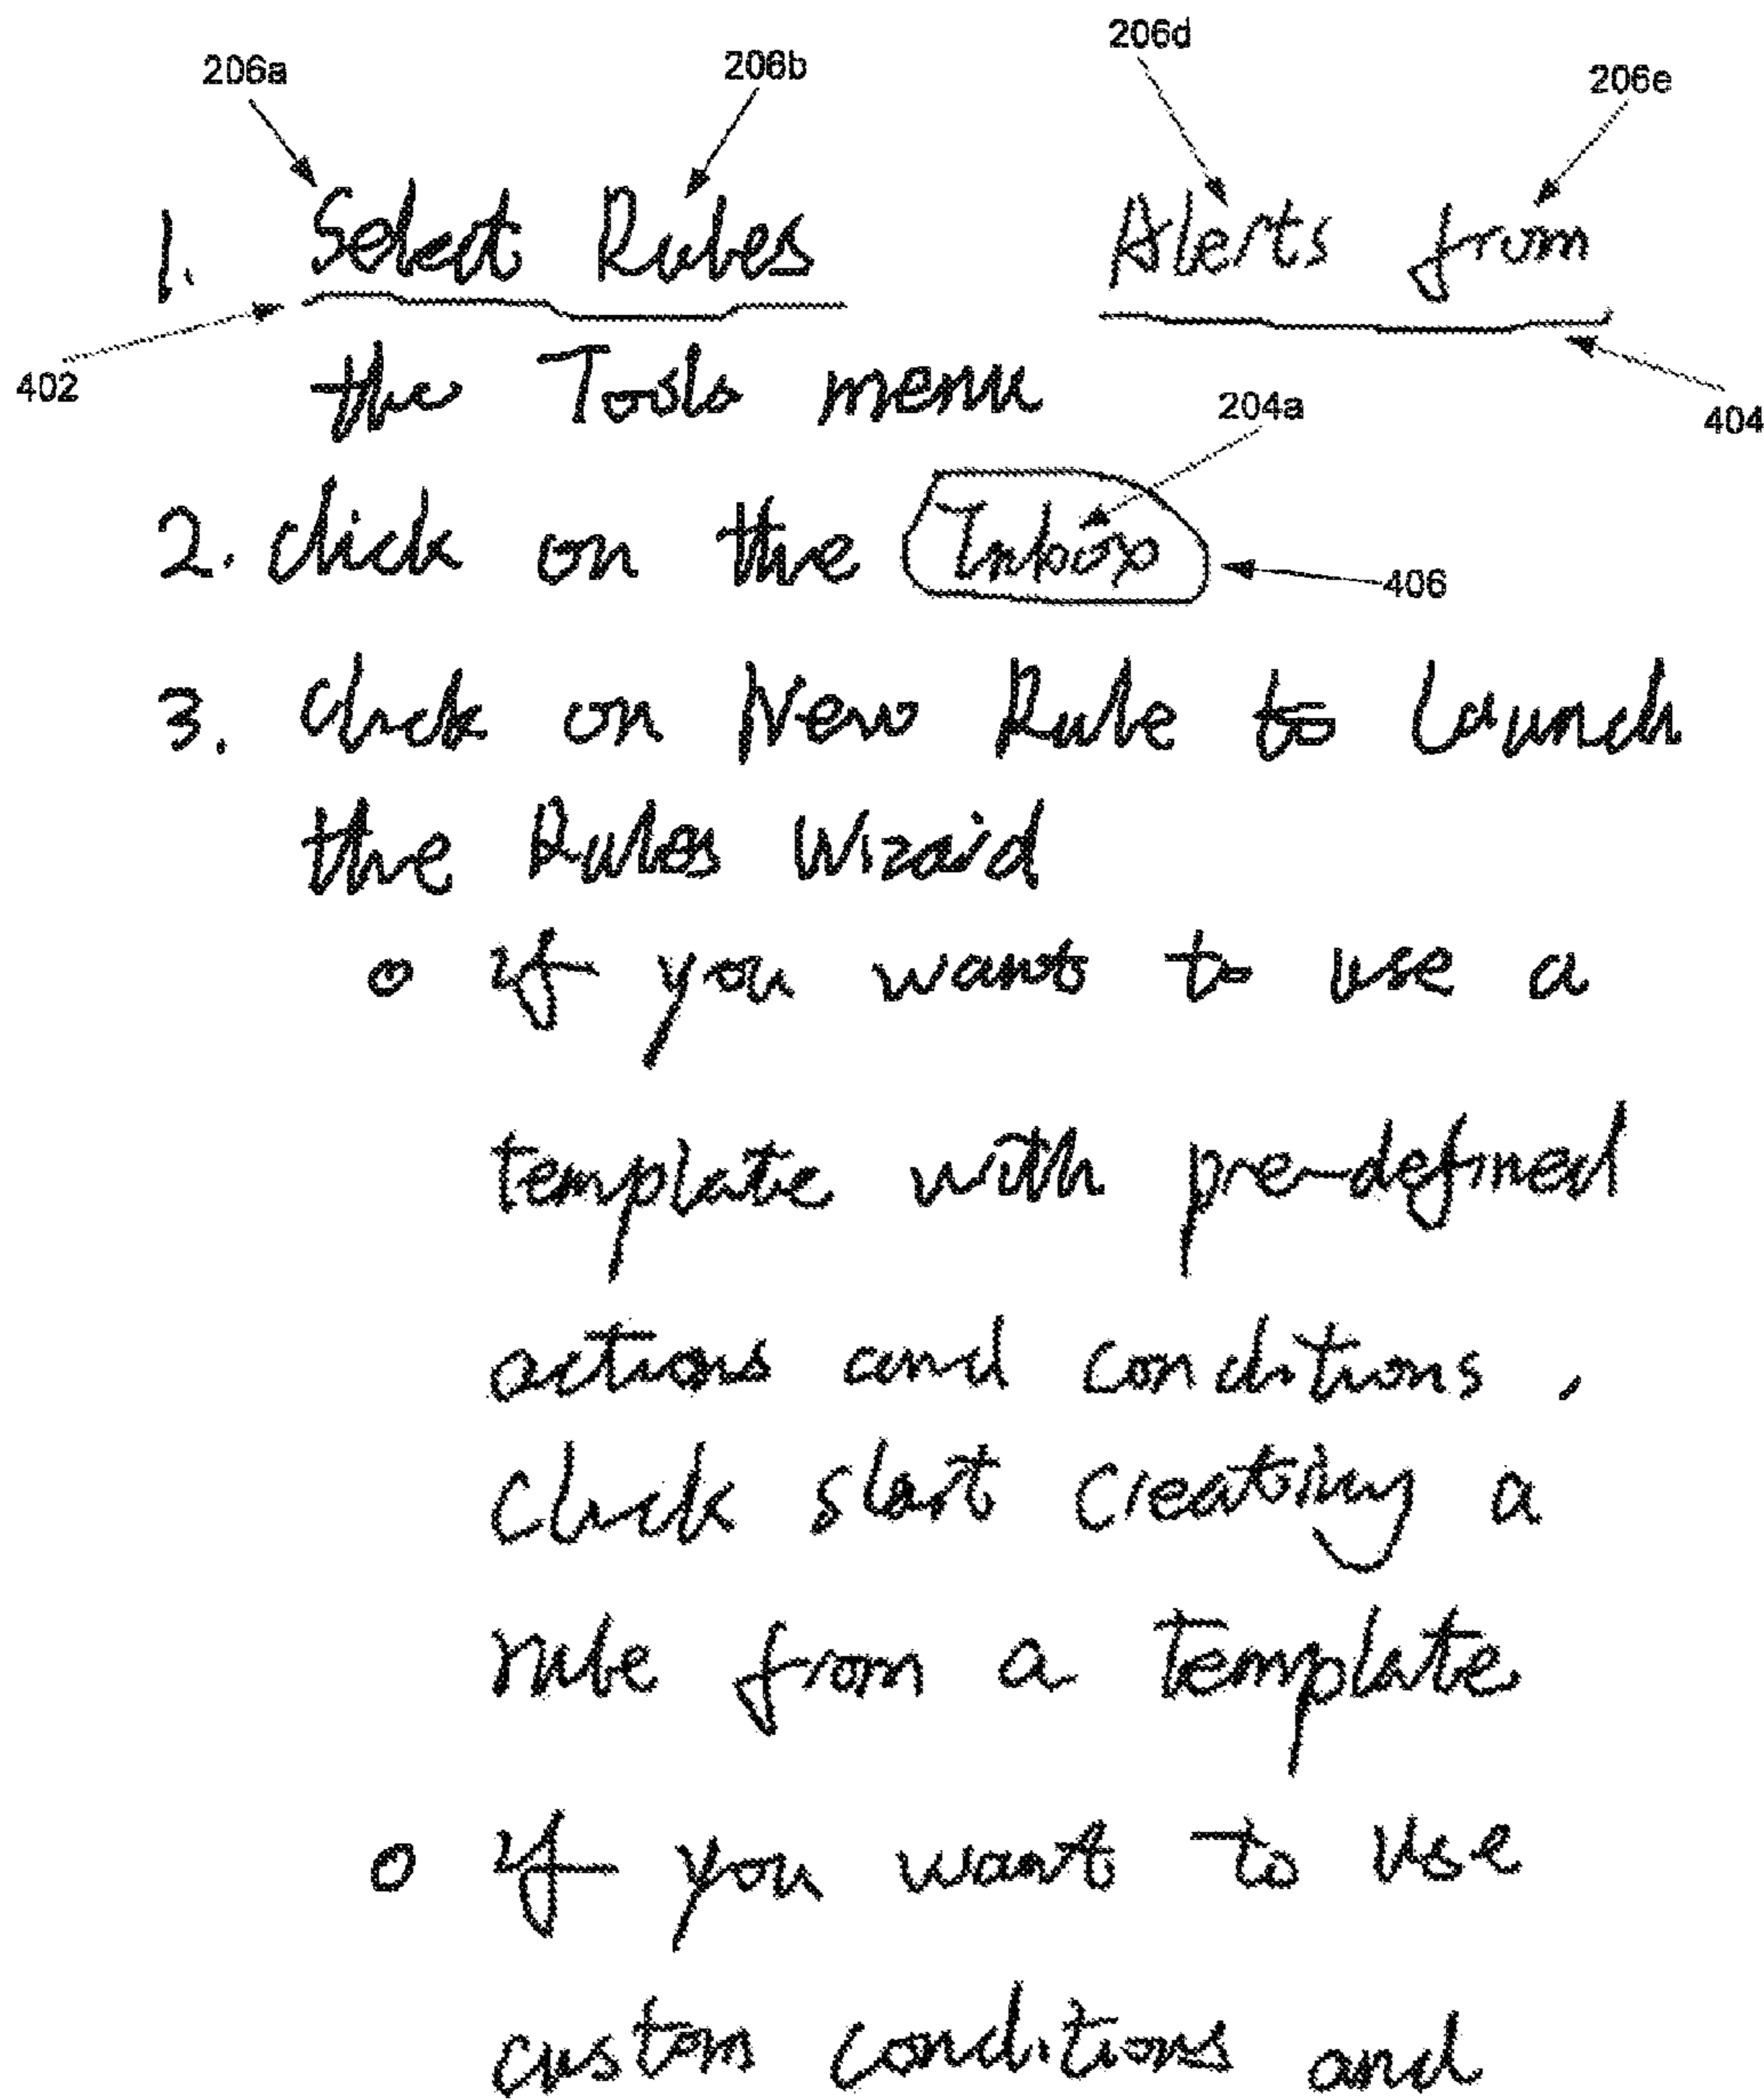 206a 206b 206d 206e
1. Select Rules Alerts from
402 404
the Tools menu
204a
2. click on the Inbox
406
3. Click on New Rule to Launch
the Rules Wizard
o if you want to use a
template with pre-defined
actions and conditions,
Click start creating a
rule from a Template
o if you want to use
custom conditions and